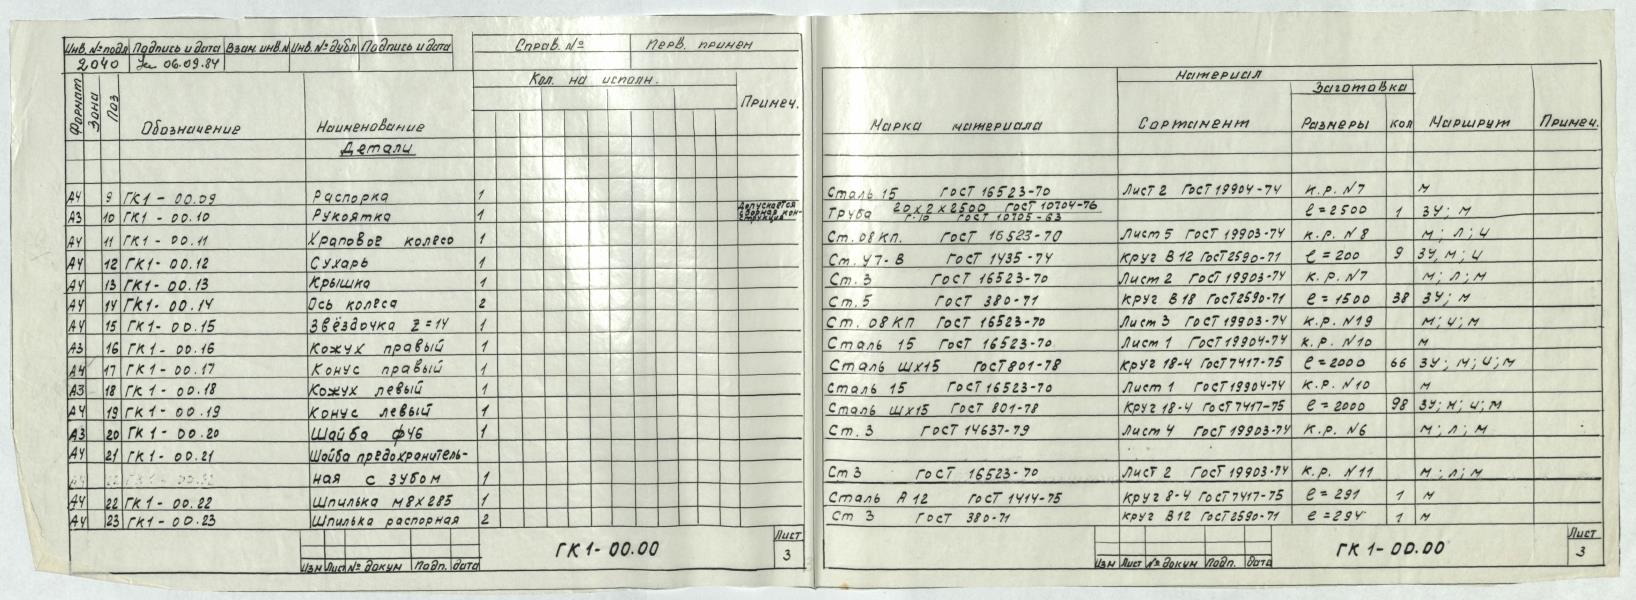 Инв. № подл Подпись и дата Взам. инв. N Инв. № дубл Подпись и дата Справ. № Перв. примен
2040 06.09.84
Формат Зона Поз Обозначение Наименование Кол. на исполн. Примеч.
Детали
А4 9 ГК1-00.09 Распорка 1
А3 10 ГК1-00.10 Рукоятка 1 Допускается сборная кон-струкция
А4 11 ГК1-00.11 Храповое колесо 1
А4 12 ГК1-00.12 Сухарь 1
А4 13 ГК1-00.13 Крышка 1
А4 14 ГК1-00.14 Ось колеса 2
А4 15 ГК1-00.15 Звёздочка Z=14 1
А3 16 ГК1-00.16 Кожух правый 1
А4 17 ГК1-00.17 Конус правый 1
А3 18 ГК1-00.18 Кожух левый 1
А4 19 ГК1-00.19 Конус левый 1
А3 20 ГК1-00.20 Шайба ф46 1
А4 21 ГК1-00.21 Шайба предохранитель-
ная с зубом 1
А4 22 ГК1-00.22 Шпилька М8х285 1
А4 23 ГК1-00.23 Шпилька распорная 2
Изм Лист № докум Подп. дата ГК1-00.00 Лист 3
Материал
Заготовка
Марка материала Сортамент Размеры кол Маршрут Примеч.
Сталь 15 ГОСТ 16523-70 Лист 2 ГОСТ 19904-74 к.р. №7 м
Труба 20х2х2500 ГОСТ 10704-76 ℓ=2500 1 ЗУ; м
ГОСТ 10705-63
Ст. 08 КП. ГОСТ 16523-70 Лист 5 ГОСТ 19903-74 к.р. №8 м; л; ч
Ст. У7-В ГОСТ 1435-74 Круг В12 ГОСТ 2590-71 ℓ=200 9 ЗУ, м; ч
Ст. 3 ГОСТ 16523-70 Лист 2 ГОСТ 19903-74 к.р. №7 м; л; м
Ст. 5 ГОСТ 380-71 Круг В18 ГОСТ 2590-71 ℓ=1500 38 ЗУ; м
Ст. 08 КП ГОСТ 16523-70 Лист 3 ГОСТ 19903-74 к.р. №19 м; ч; м
Сталь 15 ГОСТ 16523-70 Лист 1 ГОСТ 19904-74 к.р. №10 м
Сталь ШХ15 ГОСТ 801-78 Круг 18-4 ГОСТ 7417-75 ℓ=2000 66 ЗУ; м; ч; м
Сталь 15 ГОСТ 16523-70 Лист 1 ГОСТ 19904-74 к.р. №10 м
Сталь ШХ15 ГОСТ 801-78 Круг 18-4 ГОСТ 7417-75 ℓ=2000 98 ЗУ; м; ч; м
Ст. 3 ГОСТ 14637-79 Лист 4 ГОСТ 19903-74 к.р. №6 м; л; м
Ст 3 ГОСТ 16523-70 Лист 2 ГОСТ 19903-74 к.р. №11 м; л; м
Сталь А12 ГОСТ 1414-75 Круг 8-4 ГОСТ 7417-75 ℓ=291 1 м
Ст 3 ГОСТ 380-71 Круг В12 ГОСТ 2590-71 ℓ=294 1 м
Изм Лист № докум Подп. Дата ГК1-00.00 Лист 3